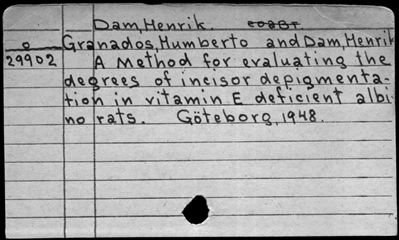 Dam, Henrik.
o Granados, Humberto and Dam, Henrik
29902 A method for evaluating the
degrees of incisor depigmenta-
tion in vitamin E deficient albi-
no rats. Göteborg, 1948.